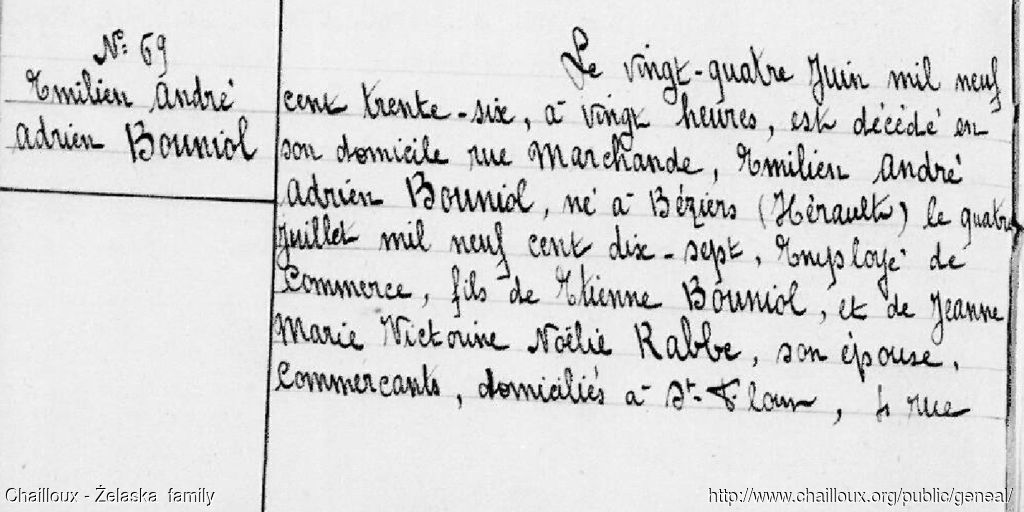 N° 69
Emilien André
Adrien Bouniol
Le vingt-quatre Juin mil neuf
cent trente-six, à vingt heures, est décédé en
son domicile rue Marchande, Emilien André
Adrien Bouniol, né à Béziers (Hérault) le quatre
Juillet mil neuf cent dix-sept, Employé de
Commerce, fils de Etienne Bouniol, et de Jeanne
Marie Victorine Noëlie Rabbe, son épouse,
Commercants, domiciliés à St-Flour, 4 rue
Chailloux - Żelaska family
http://www.chailloux.org/public/geneal/